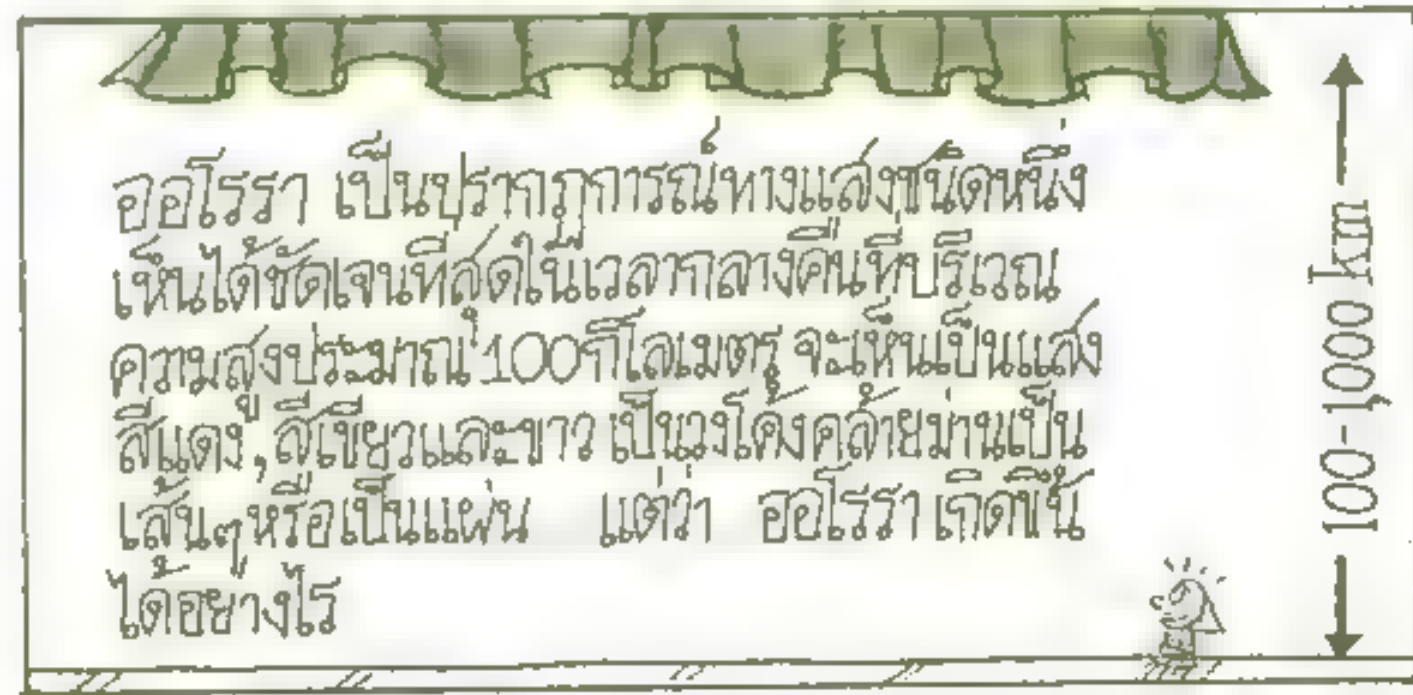 ออโรรา เป็นปรากฏการณ์ทางแสงชนิดหนึ่ง
เห็นได้ชัดเจนที่สุดในเวลากลางคืนที่บริเวณ
ความสูงประมาณ 100 กิโลเมตร จะเห็นเป็นแสง
สีแดง, สีเขียวและขาว เป็นวงโค้งคล้ายม่านเป็น
เส้นๆ หรือเป็นแผ่น แต่ว่า ออโรรา เกิดขึ้น
ได้อย่างไร
100-1,000 km